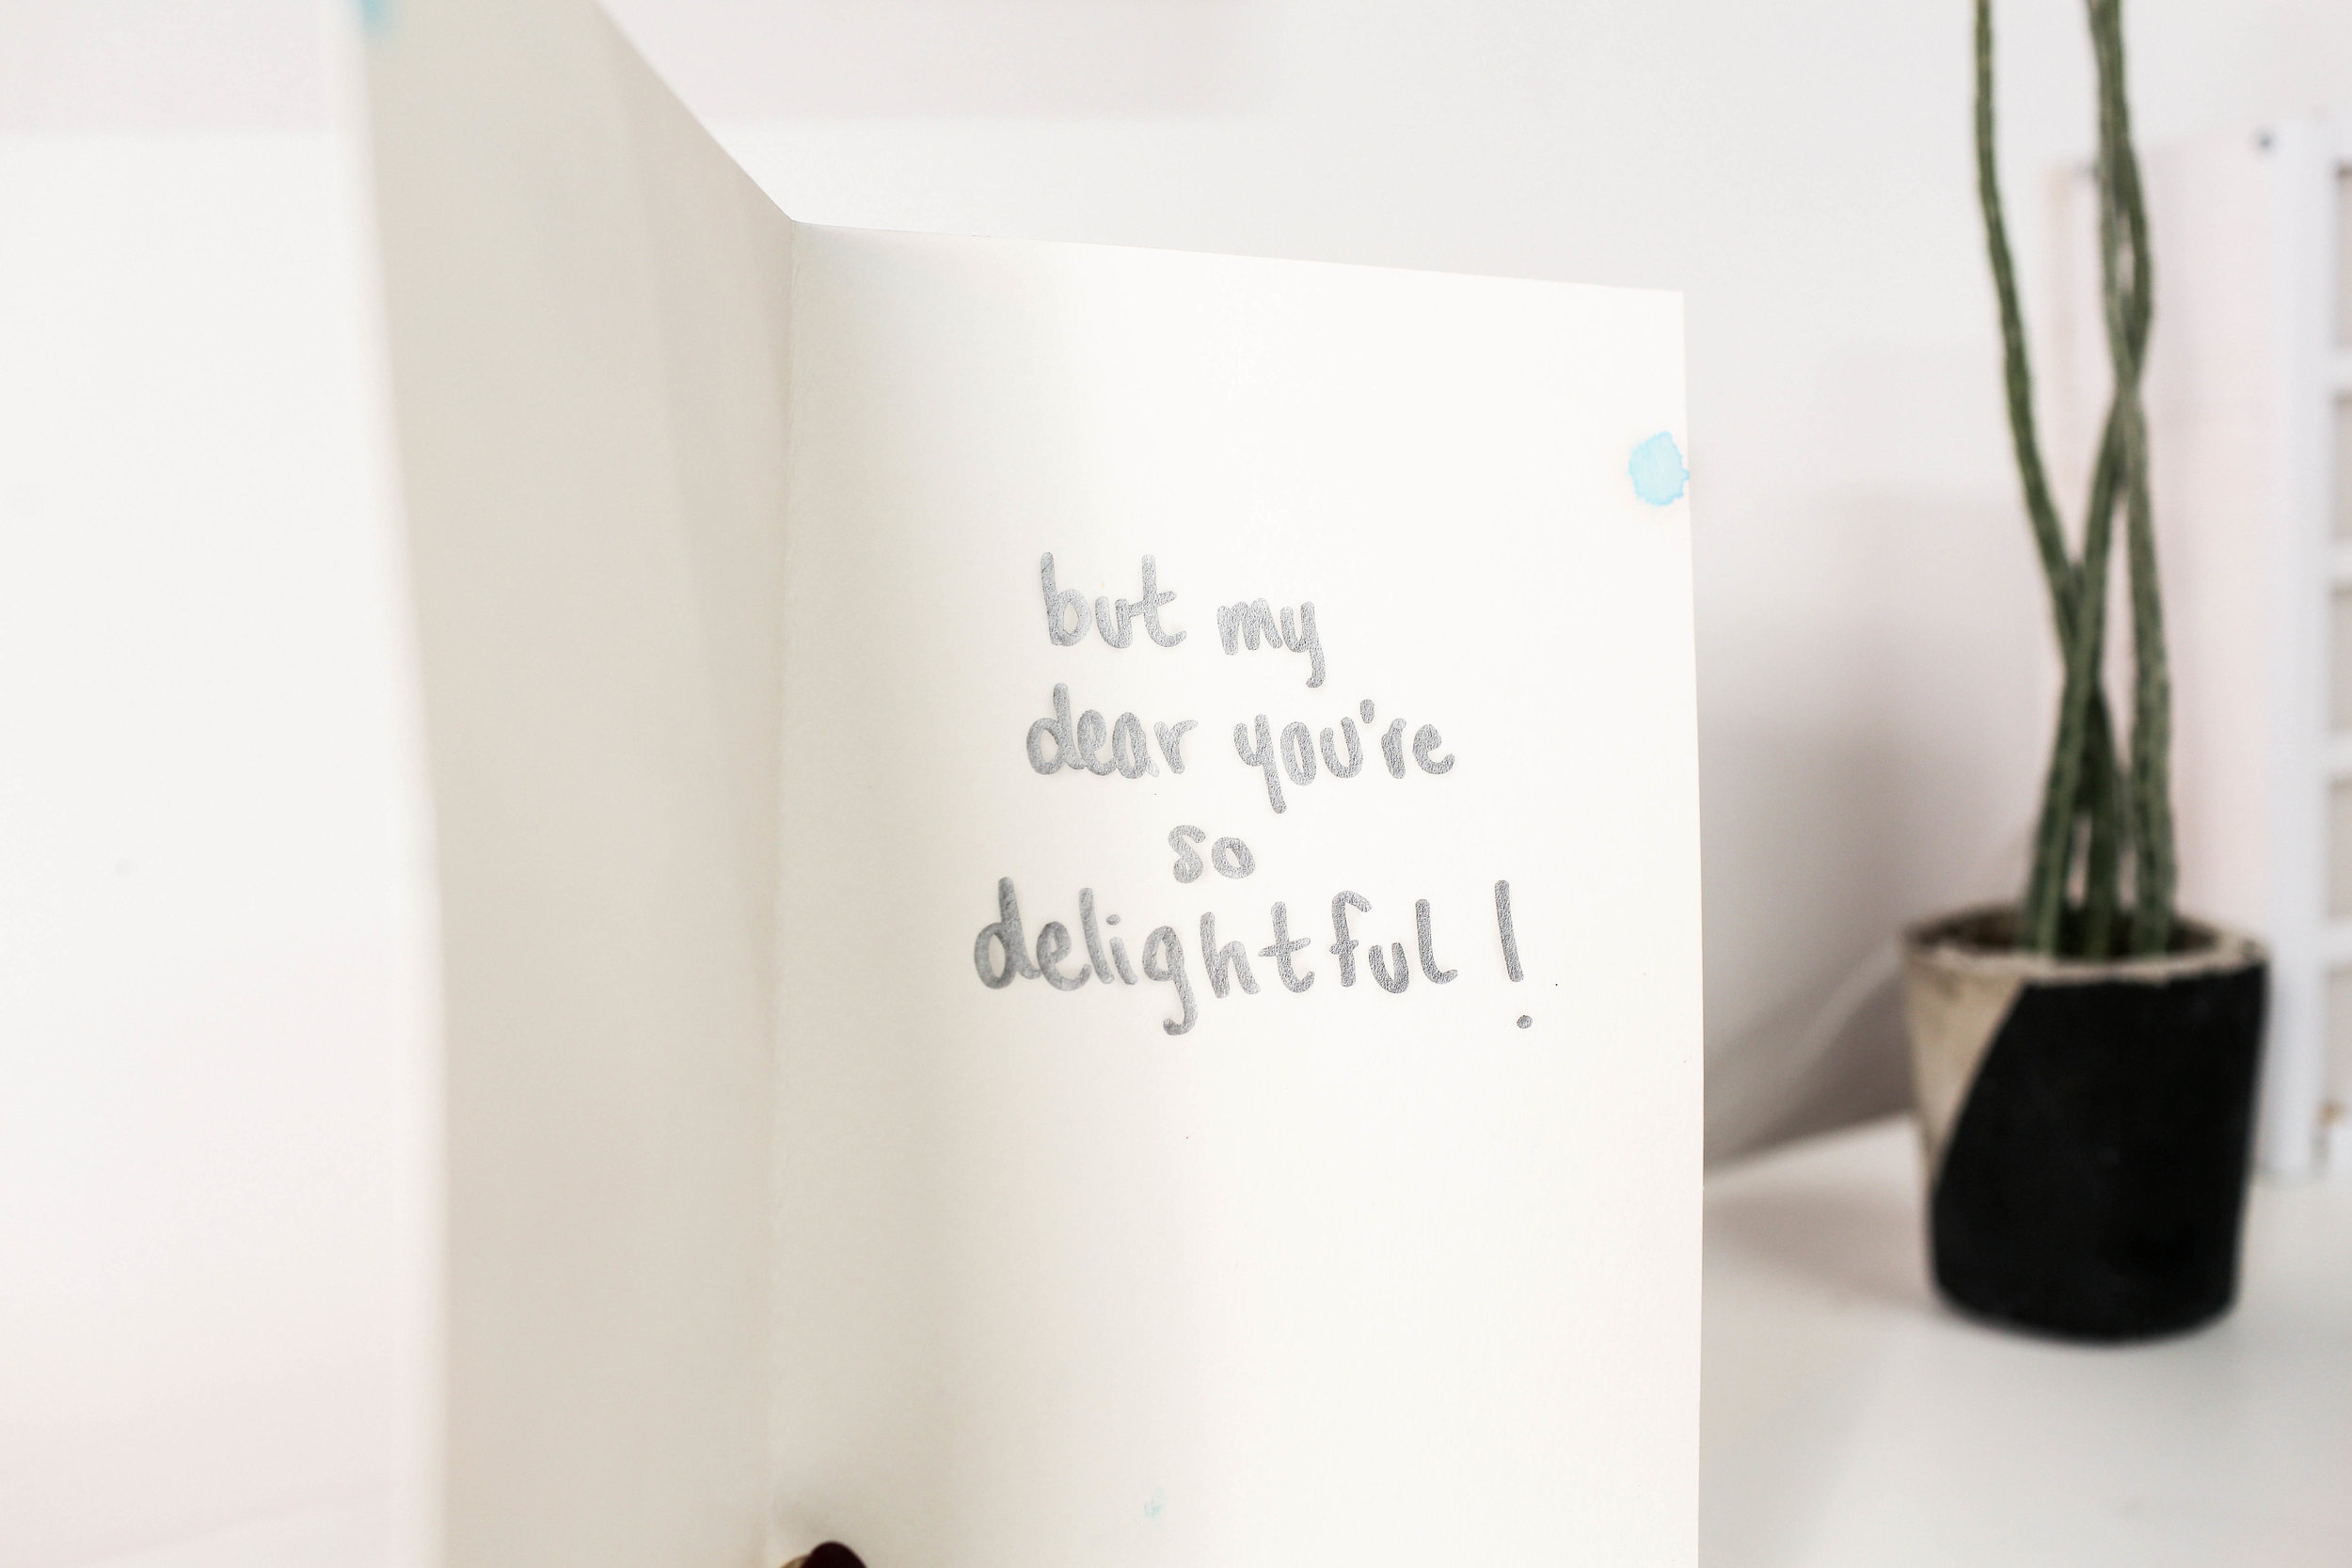 but my
dear you're
so
delightful!